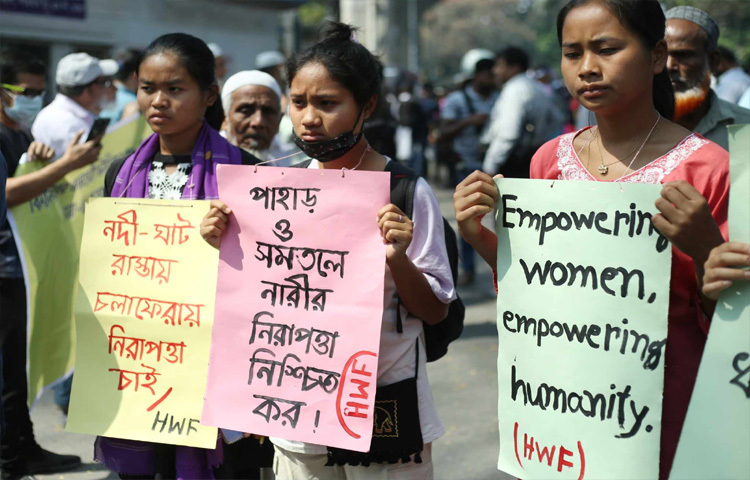 নদী-ঘাট
রাস্তায়
চলাফেরায়
নিরাপত্তা
চাই/
HWF
পাহাড়
ও
সমতলে
নারীর
নিরাপত্তা
নিশ্চিত
কর!
HWF
Empowering
women,
empowering
humanity.
(HWF)